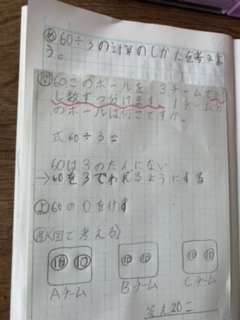 め 60÷3の計算のしかたを考えよ
う。
問 60このボールを、3チームで同
じ数ずつ分けます。1チーム分
のボールは何こですか。
式 60÷3=
60は3のだんにない
→60を3でわれるようにする
60の0をけす
図で考える
10 10
10 10
10 10
Aチーム
Bチーム
Cチーム
答え20こ